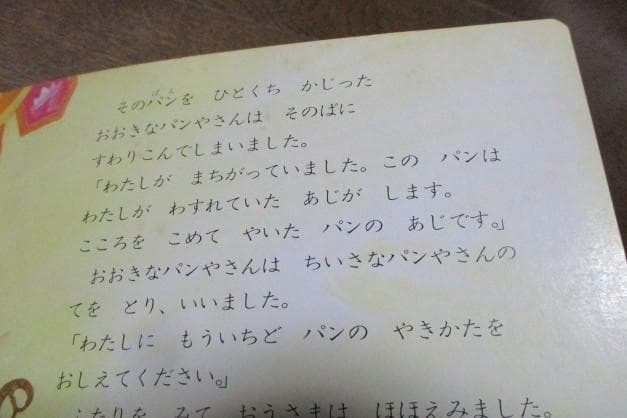 そのパンを　ひとくち　かじった
おおきなパンやさんは　そのばに
すわりこんでしまいました。
「わたしが　まちがっていました。この　パンは
わたしが　わすれていた　あじが　します。
こころを　こめて　やいた　パンの　あじです。」
おおきなパンやさんは　ちいさなパンやさんの
てを　とり、いいました。
「わたしに　もういちど　パンの　やきかたを
おしえてください。」
ふたりを　みて　おうさまは　ほほえみました。